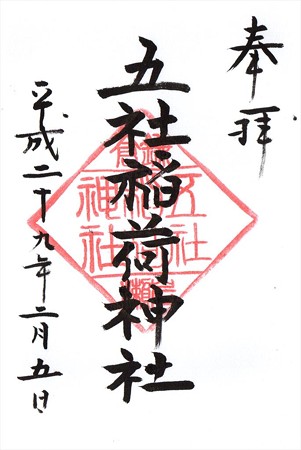 奉拝
五社稲荷神社
平成二十九年二月五日
五社
神社